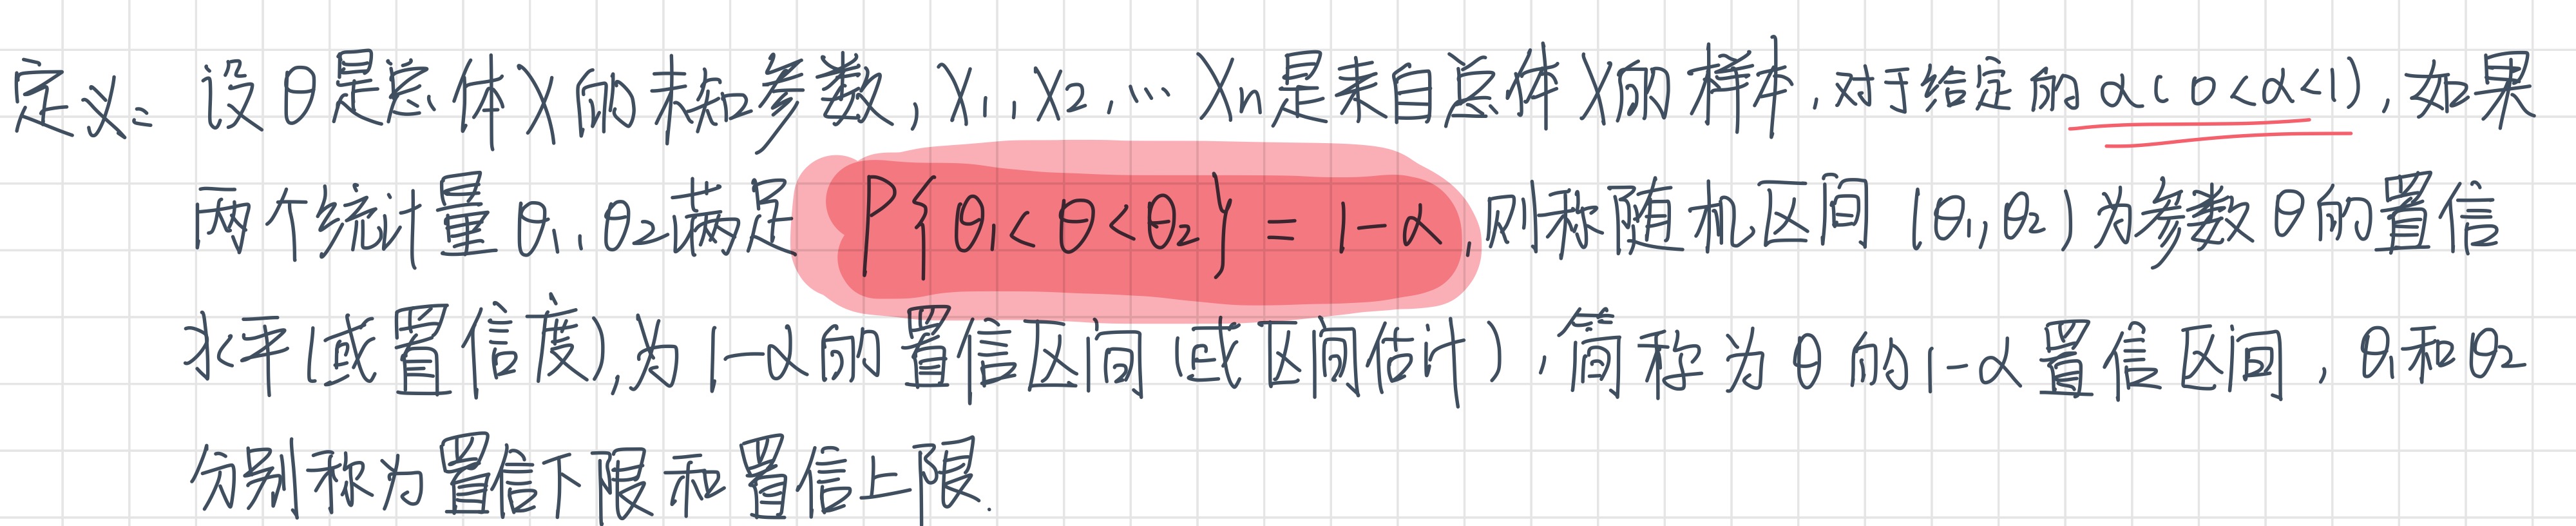 定义: 设θ是总体X的未知参数,X₁,X₂,…Xn是来自总体X的样本,对于给定的α(0<α<1),如果
两个统计量θ₁,θ₂满足 P{θ₁<θ<θ₂}=1-α,则称随机区间(θ₁,θ₂)为参数θ的置信
水平(或置信度),为1-α的置信区间(或区间估计),简称为θ的1-α置信区间,θ₁和θ₂
分别称为置信下限和置信上限.